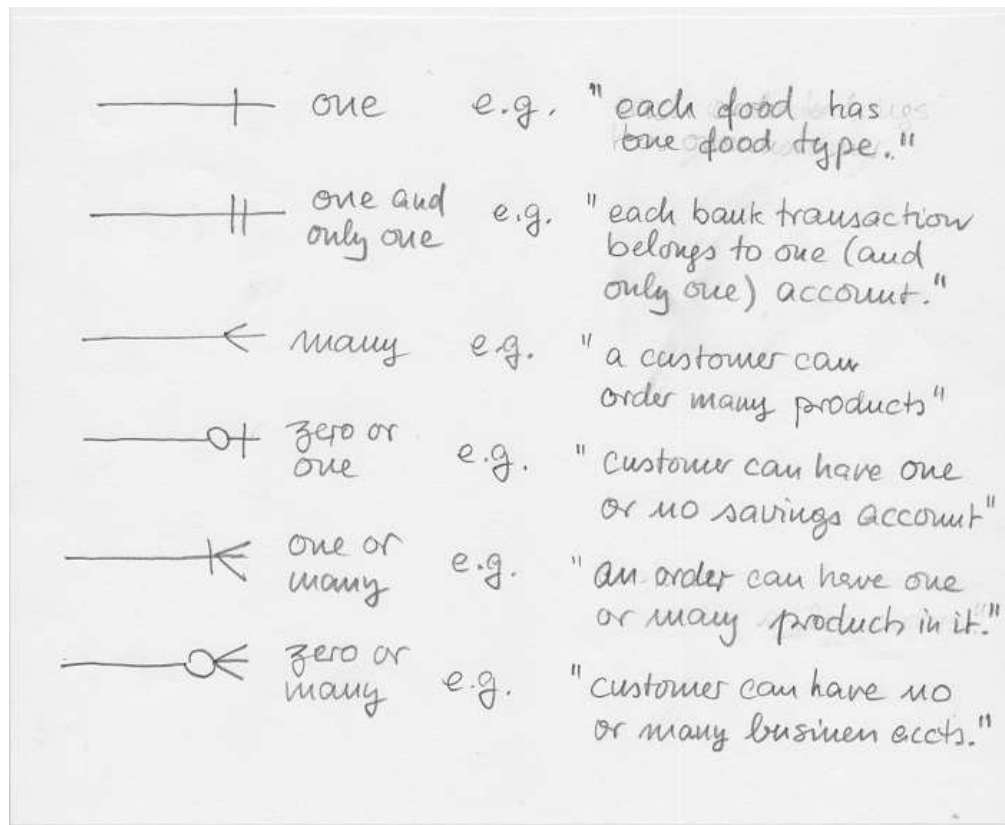 one e.g. "each food has
one food type."
one and e.g. "each bank transaction
only one belongs to one (and
only one) account."
many e.g. "a customer can
order many products"
zero or e.g. "customer can have one
one or no savings account"
one or e.g. "an order can have one
many or many products in it."
zero or e.g. "customer can have no
many or many business accts."